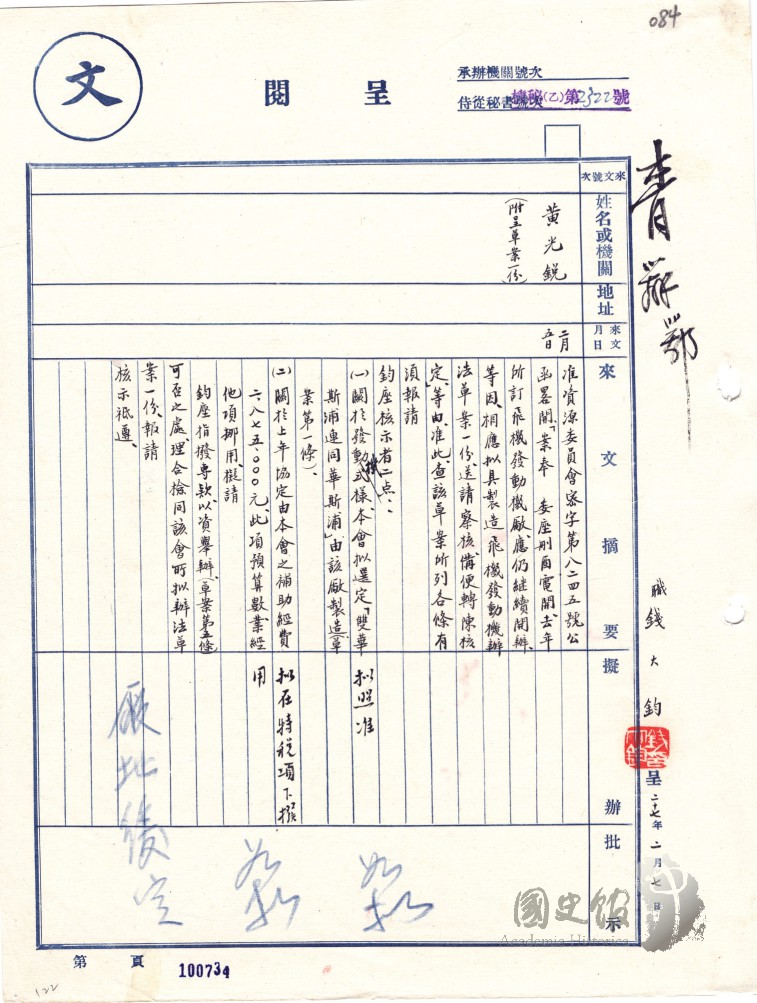 084
文
呈閱
承辦機關號次
侍從秘書號次
機秘(乙)第2322號
來文號次
姓名或機關
黃光銳
(附呈草案一份)
地址
來文月日
二月五日
來文摘要
准資源委員會密字第八二四五號公
函畧開、「案奉 委座刪酉電開去年
所訂飛機發動機廠、應仍繼續開辦、
等因、相應擬具製造飛機發動機辦
法草案一份送請察核備便轉陳核
定」等由、准此、查該草案所列各條有
須報請
鈞座核示者二点、:
(一)關於發動機式樣、本會擬選定「雙華
斯浦連同華斯浦」由該廠製造(草
案第一條)、
(二)關於上年協定由本會之補助經費
六八七五、000元、此項預算數業經
他項挪用、擬請
鈞座指撥專款、以資舉辦、(草案第五條)
可否之處、理合檢同該會所擬辦法草
案一份、報請
核示祗遵、
擬辦
擬照准
擬在特稅項下撥
用
批示
如擬
如擬
廠址緩定
職錢大鈞
呈
二十七年二月七日
國史館
Academia Historica
第 頁
100734
122